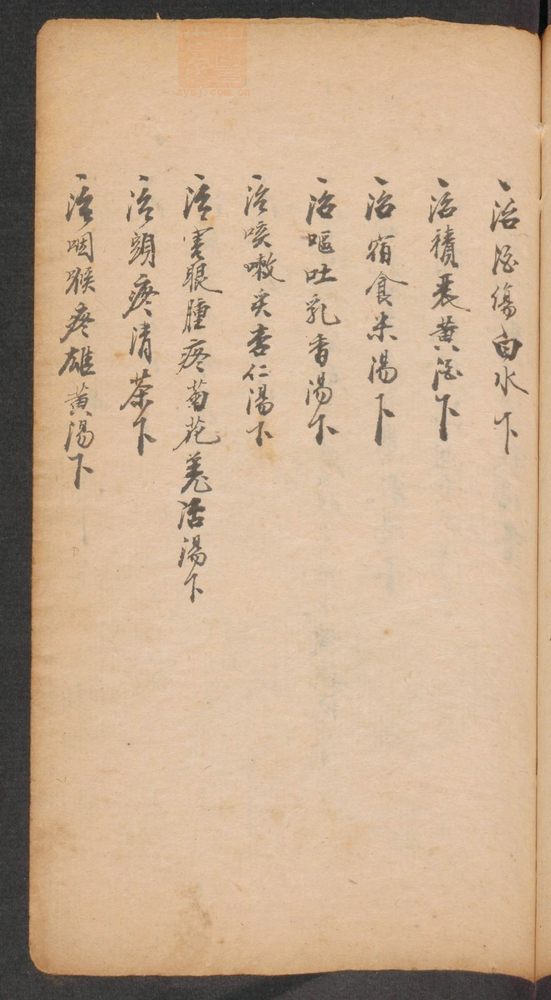 一治酒傷白水下
一治積表黄酒下
一治宿食米湯下
一治嘔吐乳香湯下
一治咳嗽炙杏仁湯下
一治害眼腫疼菊花羌活湯下
一治頭疼清茶下
一治咽喉疼雄黄湯下
zysj.com.cn